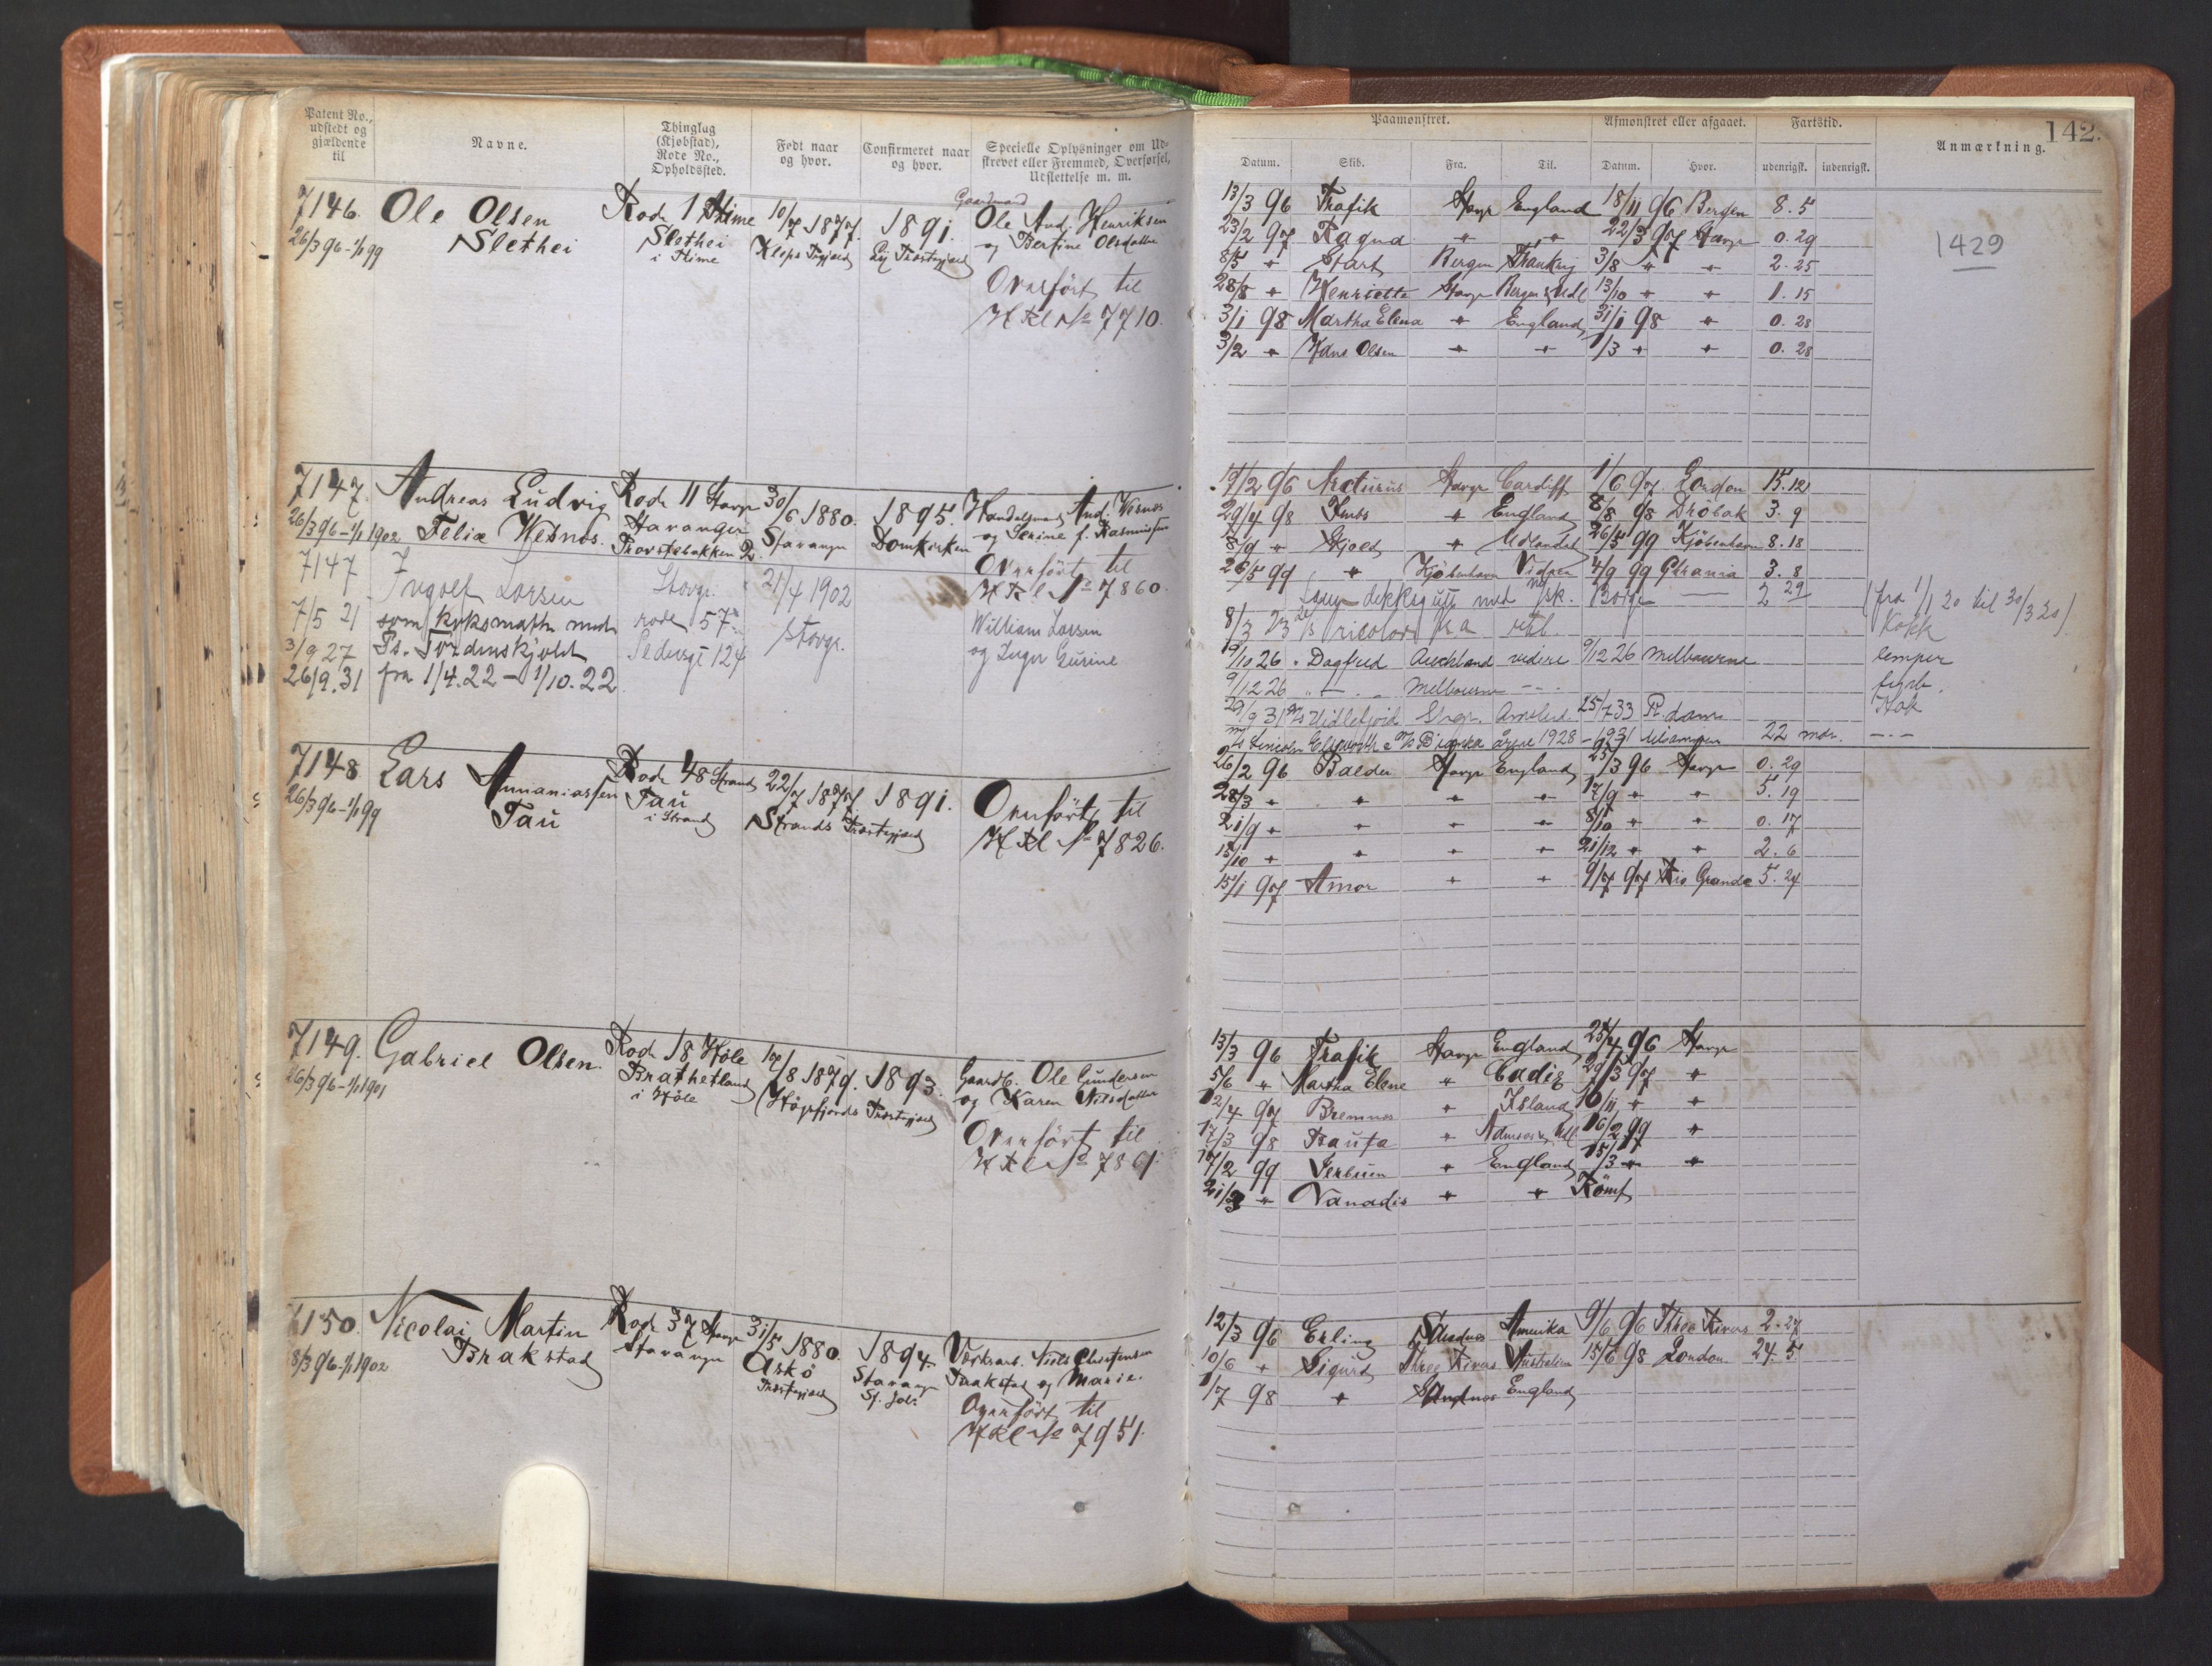 Patent No., udstedt og gjældende til
Navne.
Thinglag (Kjøbstad), Rode No., Opholdssted.
Født naar og hvor.
Confirmeret naar og hvor.
Specielle Oplysninger om Udskrevet eller Fremmed, Overførsel, Udslettelse m. m.
7146. Ole Olsen Rode 1 Thime 10/7 1877. 1891. Gaardmand Ole And. Henriksen
26/3 96 - 1/1 99 Slethei Slethei i Thime Klep Prgjæld Ly Præstegjæld og Bertine Olsdatter
Overført til
H Rl No 7710.
7147. Andreas Ludvig Rode 11 Stavgr 30/6 1880. 1895. Handelsmand And. Wesnes
26/3 96 - 1/1 1902 Felix Wesnes. Stavanger Stavanger Domkirken og Serine f. Rasmussen
Provstebakken 2.
Overført til
H Rl No 7860.
7147 Ingolf Larsen Stavgr. 21/4 1902
7/5 21 som koksmath med rode 57 Stavgr. William Larsen
3/9 27 Ss. Tordenskjold Pedersgt 124 og Inger Gurine
26/9.31 fra 1/4.22 - 1/10.22
7148 Lars Annaniassen Rode 48 Strand 22/7 1877. 1891. Overført til
26/3 96 - 1/1 99 Tau Tau i Strand Strands Præstegjæld H Rl No 7826.
7149. Gabriel Olsen. Rode 18 Høle 18/8 1879. 1893. Gaardb. Ole Gundersen
26/3 96 - 1/1 1901 Brathetland i Høle Høgsfjords Præstegjæld og Karen Nilsdatter
Overført til
H Rl No 7861.
7150. Nicolai Martin Rode 37 Stavgr 31/5 1880. 1894. Værksarb. Niels Christensen
8/3 96 - 1/1 1902 Brakstad Stavanger Askø Præstegjæld Stavanger St. Joh. Brakstad og Marie.
Overført til
H Rl No 7951.
142.
Paamønstret.
Afmønstret eller afgaaet.
Fartstid.
Anmærkning.
Datum. Skib. Fra. Til. Datum. Hvor. udenrigsk. indenrigsk.
13/3 96 Trafik Stavgr England 18/11 96 Bergen 8. 5
23/2 97 Ragna " " 22/3 97 Stavgr 0. 29
8/5 " Start Bergen Frankrig 3/8 " " 2. 25
28/8 " Henriette Stavgr Bergen & Udl 13/10 " " 1. 15
3/1 98 Martha Elena " England 31/1 98 " 0. 28
3/2 " Hans Olsen " " 1/3 " " 0. 28
1429
19/2 96 Arcturus Stavgr Cardiff 1/6 97 London 15. 12
29/4 98 " England 8/8 98 Drøbak 3. 9
8/9 " Skjold " Udlandet 26/5 99 Kjøbenhavn 8. 18
26/5 99 " Kjøbenhavn Videre 4/9 99 Gkrania 3. 8
dekksgutt med 2 29 (fra 1/1 20 til 30/3 20)
8/3 23 Kokk
19/10 26 Dagfred Auckland videre 9/12 26 Melbourne lemper
9/12 26 " Melbourne fyrb.
29/9 31 Uldlefjord Stvgr. 25/7 33 R.dam Kok
Lincoln Ellsworth årene 1928 - 1931 22 mdr.
26/2 96 Balder Stavgr England 25/3 96 Stavgr 0. 29
28/3 " " " " 17/9 " " 5. 19
21/9 " " " " 8/10 " " 0. 17
15/10 " " " " 21/12 " " 2. 6
15/1 97 Amor " " 9/7 97 Rio Grande 5. 24
13/3 96 Trafik Stavgr England 25/4 96 Stavgr
5/6 " Martha Elene " Cadiz 29/3 97 "
12/4 97 Bremnes " Island 10/11 " "
17/3 98 " 16/2 99 "
17/2 99 " England 15/3 " "
21/3 " Vanadis " " Rømt
12/3 96 Erling Sandnes Amerika 9/6 96 Three Rivers 2. 27
10/6 " Sigurd Three Rivers Australien 15/6 98 London 24. 5
1/7 98 " Sandnes England